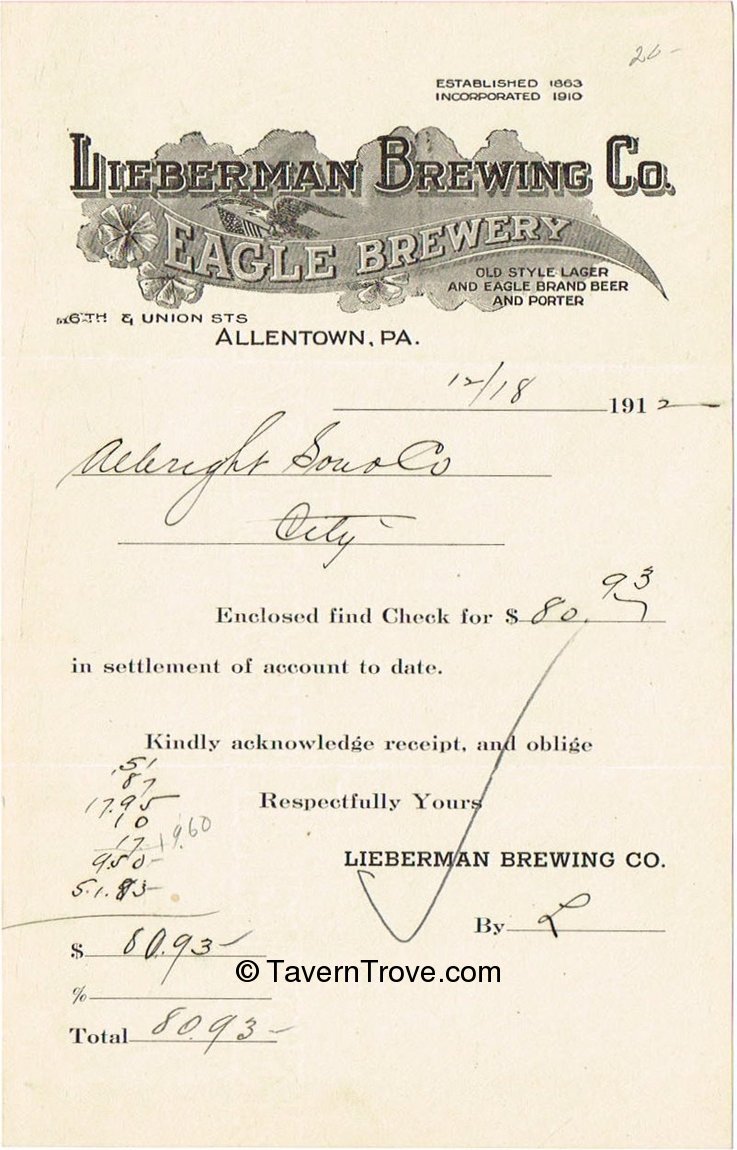 26-
ESTABLISHED 1863
INCORPORATED 1910
LIEBERMAN BREWING CO.
EAGLE BREWERY
OLD STYLE LAGER
AND EAGLE BRAND BEER
AND PORTER
6TH & UNION STS
ALLENTOWN, PA.
12/18 1912
Albright Sons Co
City
Enclosed find Check for $ 80.93
in settlement of account to date.
Kindly acknowledge receipt, and oblige
.51
87
17.95
Respectfully Yours
10
17 19.60
9.50-
LIEBERMAN BREWING CO.
51.83-
By L
$ 80.93-
© TavernTrove.com
%
Total 80.93-